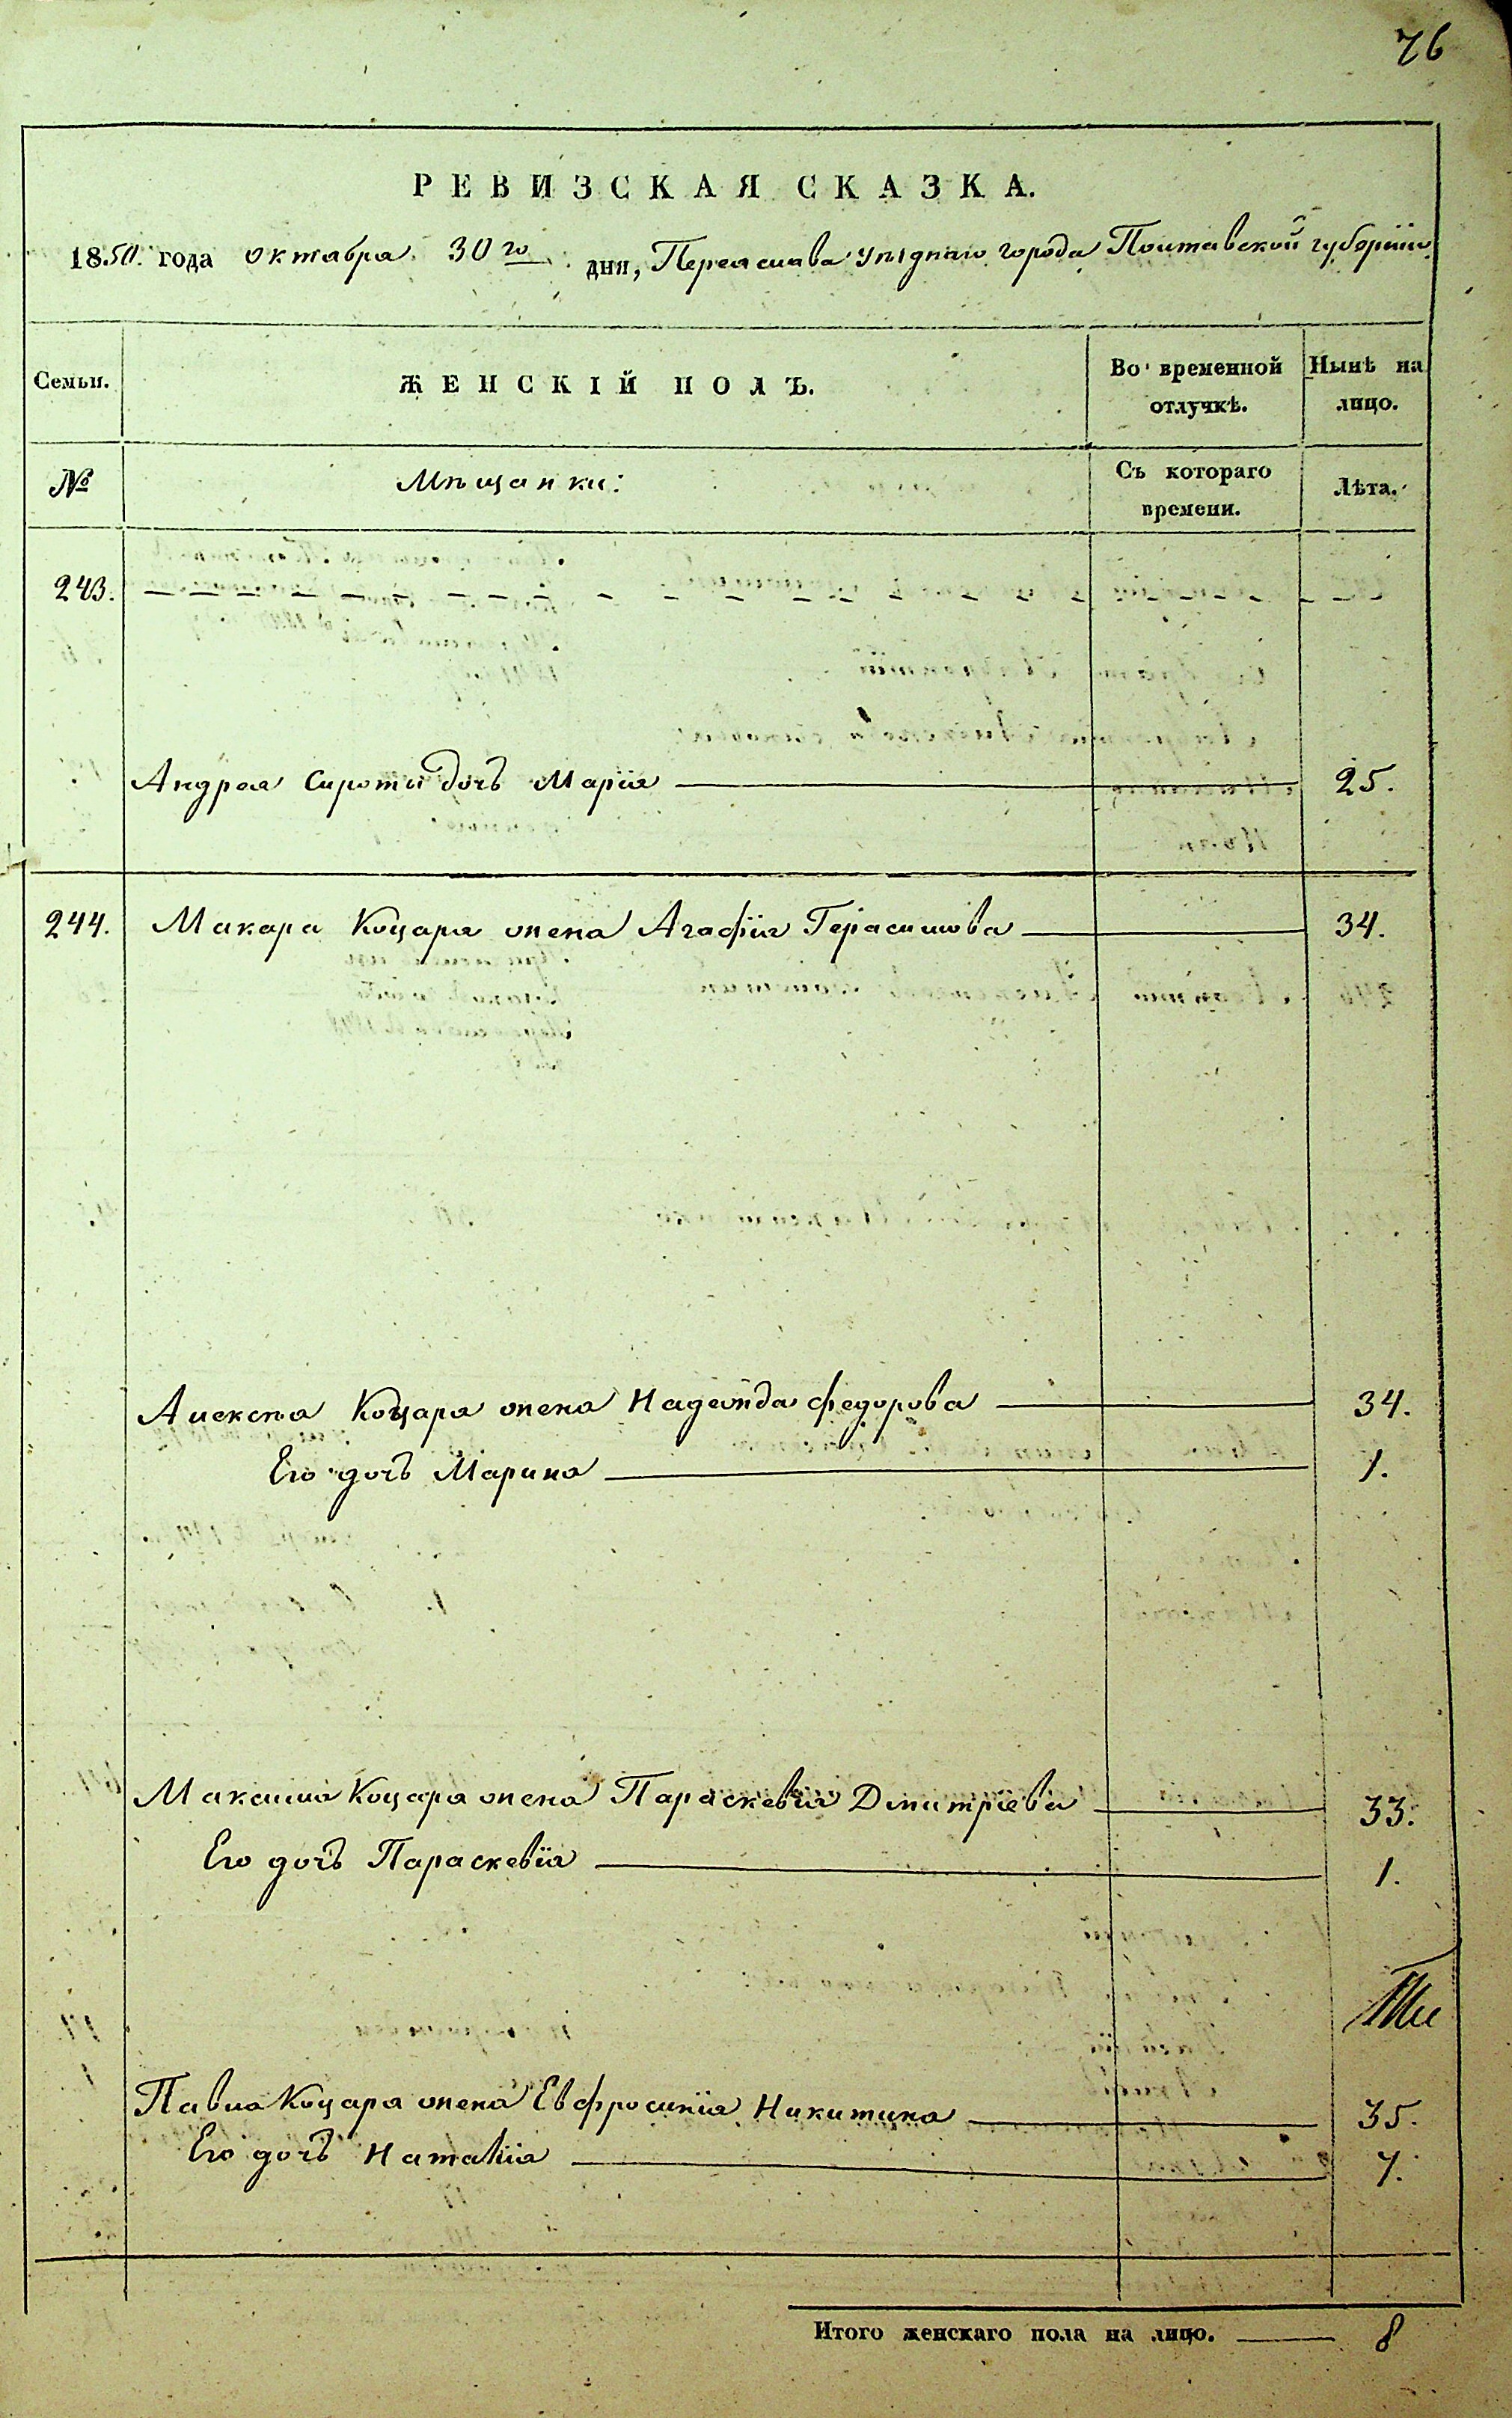 76
РЕВИЗСКАЯ СКАЗКА.
1850. года октября 30го дня, Переяслава уѣзднаго города Полтавской губерніи
Семьи. ЖЕНСКІЙ ПОЛЪ. Во временной отлучкѣ. Нынѣ на лицо.
№ Мѣщанки: Съ котораго времени. Лѣта.
243.
Андрея Сироты дочь Марія 25.
244. Макара Коцаря жена Агафія Герасимова 34.
Алексѣя Коцаря жена Надежда Федорова 34.
Его дочь Марина 1.
Максима Коцаря жена Параскевія Дмитріева 33.
Его дочь Параскевія 1.
Павла Коцаря жена Евфросинія Никитина 35.
Его дочь Наталія 7.
Итого женскаго пола на лицо. 8